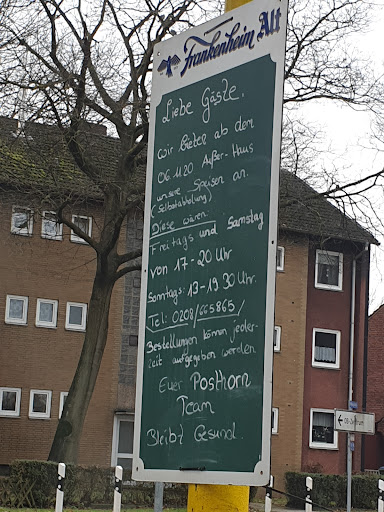 Frankenheim Alt
Liebe Gäste,
wir bieten ab dem
06.11.20 Außer-Haus
unsere Speisen an.
(Selbstabholung)
Diese wären:
Freitags und Samstag
von 17-20 Uhr
Sonntags: 13-19.30 Uhr.
Tel: 0208/665865/
Bestellungen können jeder-
zeit aufgegeben werden
Euer Posthorn
Team
Bleibt Gesund.
OB-Zentrum